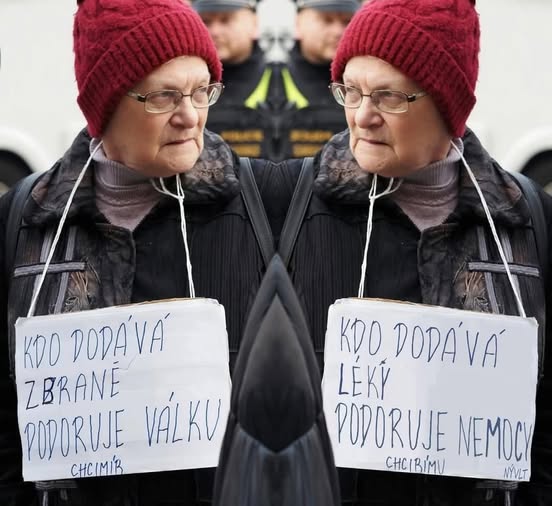 KDO DODÁVÁ
ZBRANĚ
PODORUJE VÁLKU
CHCIMÍR
KDO DODÁVÁ
LÉKŸ
PODORUJE NEMOCY
CHCIRÍMU
NÝVLT